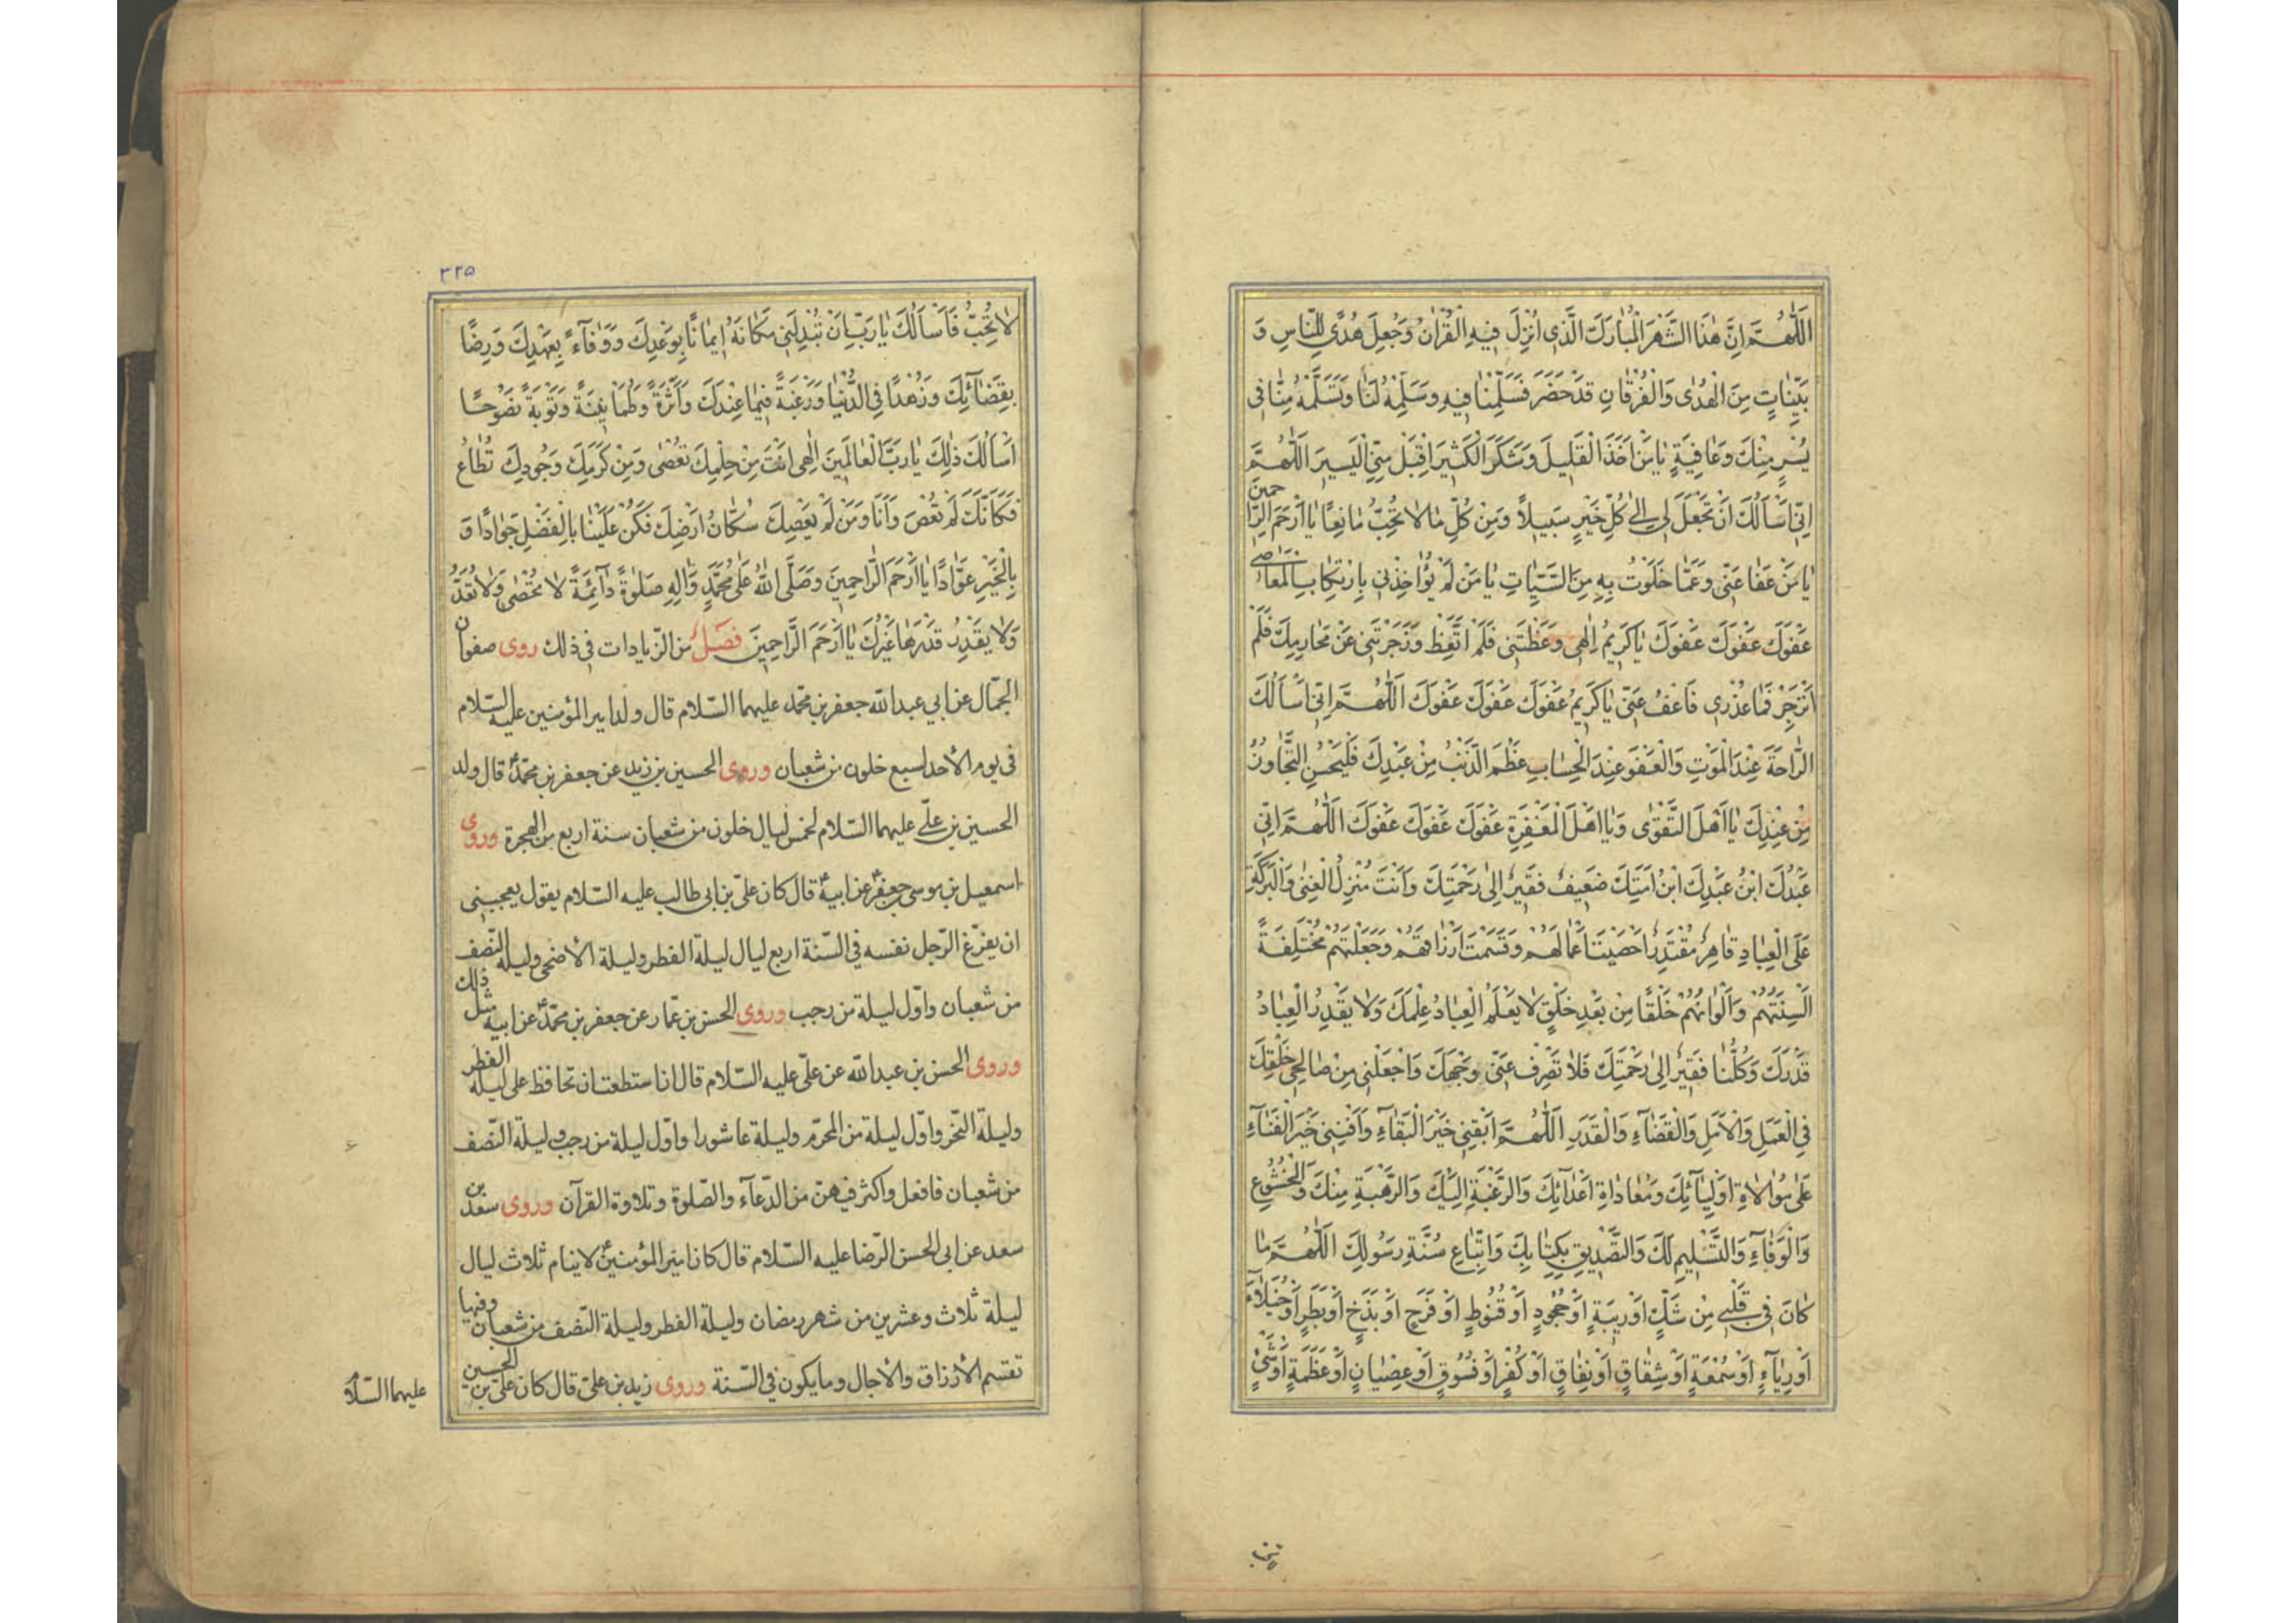 اَللّٰهُمَّ اِنَّ هٰذَا الشَّهْرَ الْمُبٰارَكَ الَّذى اُنْزِلَ فيهِ الْقُرْاٰنُ وَجُعِلَ هُدًى لِلنّٰاسِ وَ
بَيِّنٰاتٍ مِنَ الْهُدٰى وَالْفُرْقٰانِ قَدْ حَضَرَ فَسَلِّمْنٰا فيهِ وَسَلِّمْهُ لَنٰا وَتَسَلَّمْهُ مِنّٰا فى
يُسْرٍ مِنْكَ وَعٰافِيَةٍ يٰا مَنْ اَخَذَ الْقَليلَ وَشَكَرَ الْكَثيرَ اِقْبَلْ مِنِّى الْيَسيرَ اَللّٰهُمَّ
اِنّى اَسْاَلُكَ اَنْ تَجْعَلَ لى اِلىٰ كُلِّ خَيْرٍ سَبيلاً وَمِنْ كُلِّ مٰا لاٰ تُحِبُّ مٰانِعًا يٰا اَرْحَمَ الرّٰاحمينَ
يٰا مَنْ عَفٰا عَنّى وَعَمّٰا خَلَوْتُ بِهِ مِنَ السَّيِّاٰتِ يٰا مَنْ لَمْ يُؤٰاخِذْنى بِارْتِكٰابِ الْمَعٰاصى
عَفْوَكَ عَفْوَكَ عَفْوَكَ يٰا كَريمُ اِلٰهى وَعَظْتَنى فَلَمْ اَتَّعِظْ وَزَجَرْتَنى عَنْ مَحٰارِمِكَ فَلَمْ
اَنْزَجِرْ فَمٰا عُذْرى فَاعْفُ عَنّى يٰا كَريمُ عَفْوَكَ عَفْوَكَ عَفْوَكَ اَللّٰهُمَّ اِنّى اَسْاَلُكَ
الرّٰاحَةَ عِنْدَ الْمَوْتِ وَالْعَفْوَ عِنْدَ الْحِسٰابِ عَظُمَ الذَّنْبُ مِنْ عَبْدِكَ فَلْيَحْسُنِ التَّجٰاوُزُ
مِنْ عِنْدِكَ يٰا اَهْلَ التَّقْوٰى وَيٰا اَهْلَ الْمَغْفِرَةِ عَفْوَكَ عَفْوَكَ عَفْوَكَ اَللّٰهُمَّ اِنّى
عَبْدُكَ ابْنُ عَبْدِكَ ابْنُ اَمَتِكَ ضَعيفٌ فَقيرٌ اِلىٰ رَحْمَتِكَ وَاَنْتَ مُنْزِلُ الْغِنىٰ وَالْبَرَكَةِ
عَلَى الْعِبٰادِ قٰاهِرٌ مُقْتَدِرٌ اَحْصَيْتَ اَعْمٰالَهُمْ وَقَسَمْتَ اَرْزٰاقَهُمْ وَجَعَلْتَهُمْ مُخْتَلِفَةً
اَلْسِنَتُهُمْ وَاَلْوٰانُهُمْ خَلْقًا مِنْ بَعْدِ خَلْقٍ لاٰ يَعْلَمُ الْعِبٰادُ عِلْمَكَ وَلاٰ يَقْدِرُ الْعِبٰادُ
قَدْرَكَ وَكُلُّنٰا فَقيرٌ اِلىٰ رَحْمَتِكَ فَلاٰ تَصْرِفْ عَنّى وَجْهَكَ وَاجْعَلْنى مِنْ صٰالِحى خَلْقِكَ
فِى الْعَمَلِ وَالْاَمَلِ وَالْقَضٰاۤءِ وَالْقَدَرِ اَللّٰهُمَّ اَبْقِنى خَيْرَ الْبَقٰاۤءِ وَاَفْنِنى خَيْرَ الْفَنٰاۤءِ
عَلىٰ مُوٰالاٰةِ اَوْلِيٰاۤئِكَ وَمُعٰادٰاةِ اَعْدٰاۤئِكَ وَالرَّغْبَةِ اِلَيْكَ وَالرَّهْبَةِ مِنْكَ وَالْخُشُوعِ
وَالْوَفٰاۤءِ وَالتَّسْليمِ لَكَ وَالتَّصْديقِ بِكِتٰابِكَ وَاتِّبٰاعِ سُنَّةِ رَسُولِكَ اَللّٰهُمَّ مٰا
كٰانَ فى قَلْبى مِنْ شَكٍّ اَوْ ريبَةٍ اَوْ جُحُودٍ اَوْ قُنُوطٍ اَوْ فَرَحٍ اَوْ بَذَخٍ اَوْ بَطَرٍ اَوْ خُيَلاٰۤءَ
اَوْ رِيٰاۤءٍ اَوْ سُمْعَةٍ اَوْ شِقٰاقٍ اَوْ نِفٰاقٍ اَوْ كُفْرٍ اَوْ فُسُوقٍ اَوْ عِصْيٰانٍ اَوْ عَظَمَةٍ اَوْ شَىْءٍ
٣٢٥
لاٰ تُحِبُّ فَاَسْاَلُكَ يٰا رَبِّ اَنْ تُبْدِلَنى مَكٰانَهُ اِيمٰانًا بِوَعْدِكَ وَوَفٰاۤءً بِعَهْدِكَ وَرِضًا
بِقَضٰاۤئِكَ وَزُهْدًا فِى الدُّنْيٰا وَرَغْبَةً فيمٰا عِنْدَكَ وَاَثَرَةً وَطُمَاْنينَةً وَتَوْبَةً نَصُوحًا
اَسْاَلُكَ ذٰلِكَ يٰا رَبَّ الْعٰالَمينَ اِلٰهى اَنْتَ مِنْ حِلْمِكَ تُعْصٰى وَمِنْ كَرَمِكَ وَجُودِكَ تُطٰاعُ
فَكَاَنَّكَ لَمْ تُعْصَ وَاَنَا وَمَنْ لَمْ يَعْصِكَ سُكّٰانُ اَرْضِكَ فَكُنْ عَلَيْنٰا بِالْفَضْلِ جَوٰادًا وَ
بِالْخَيْرِ عَوّٰادًا يٰا اَرْحَمَ الرّٰاحِمينَ وَصَلَّى اللهُ عَلىٰ مُحَمَّدٍ وَاٰلِهِ صَلٰوةً دٰاۤئِمَةً لاٰ تُحْصٰى وَلاٰ تُعَدُّ
وَلاٰ يَقْدِرُ قَدْرَهٰا غَيْرُكَ يٰا اَرْحَمَ الرّٰاحِمينَ فصل من الزيادات فى ذلك روى صفوان
الجمّال عن ابى عبد الله جعفر بن محمّد عليهما السّلام قال ولد امير المؤمنين عليه السلام
فى يوم الأحد لسبع خلون من شعبان وروى الحسين بن زيد عن جعفر بن محمّدؑ قال ولد
الحسين بن علّى عليهما السّلام لخمس ليال خلون من شعبان سنة اربع من الهجرة وروى
اسمعيل بن موسى بن جعفرؑ عن ابيهؑ قال كان علىّ بن ابى طالب عليه السّلام يقول يعجبنى
ان يفرّغ الرّجل نفسه فى السّنة اربع ليال ليلة الفطر وليلة الأضحى وليلة النّصف
من شعبان واوّل ليلة من رجب وروى الحسن بن عمّار عن جعفر بن محمّدؑ عن ابيهؑ مثل ذلك
وروى الحسن بن عبد الله عن علىّ عليه السّلام قال ان استطعت ان تحافظ على ليلة الفطر
وليلة النّحر واوّل ليلة من المحرّم وليلة عاشورا واوّل ليلة من رجب وليلة النّصف
من شعبان فافعل واكثر فيهنّ من الدّعاۤء والصّلوة وتلاوة القرآن وروى سعد بن
سعد عن ابى الحسن الرّضا عليه السّلام قال كان امير المؤمنينؑ لا ينام ثلاث ليال
ليلة ثلاث وعشرين من شهر رمضان وليلة الفطر وليلة النّصف من شعبان وفيها
تقسم الأرزاق والأجال وما يكون فى السّنة وروى زيد بن علىّ قال كان علىّ بن الحسين
عليهما السّلام